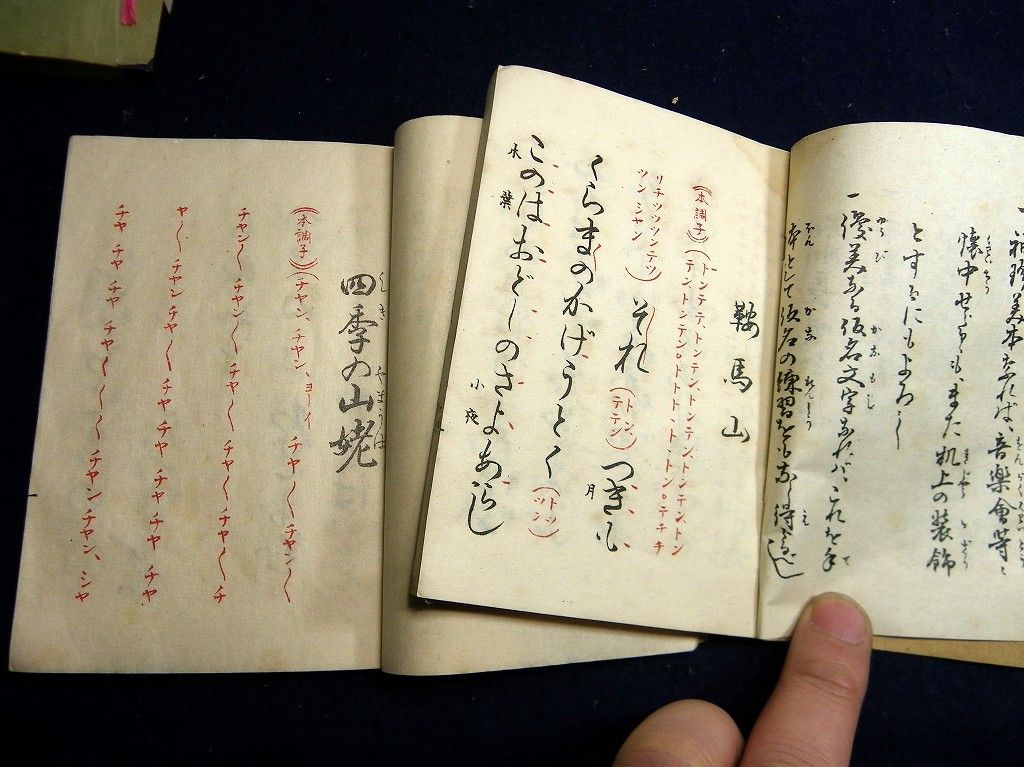 懐中せらるゝも、また机上の装飾
とするにもよろし
一優美なる仮名文字なれば、これを手
本として仮名の練習をもなし得べし
鞍馬山
(本調子)(トンテテ、トンテン、トンテン、トンテン、トン
テン、トンテン。トトト、トン。テチチ
リチツツンテツ
ツン シヤン)
それ(トン テテン) つきも
月
くらまのかげうとく(トツ ツン)
このはおどしのさよあらし
木 葉 小 夜
四季の山姥
しき やまうば
(本調子)(チヤン、チヤン、ヨーイ チヤ〱チヤン〱
チヤン〱チヤン〱チヤ〱チヤチヤ〱チ
ヤ〱チヤンチヤチヤチヤチヤチヤ
チヤチヤチヤチヤ〱〱〱チヤンチヤン、シヤ